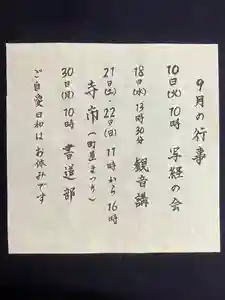 9月の行事
10日(火) 10時 写経の会
18日(水) 13時30分 観音講
21日(土)・22日(日) 11時から16時
寺市(町屋まつり)
30日(月) 10時 書道部
ご自愛日和はお休みです